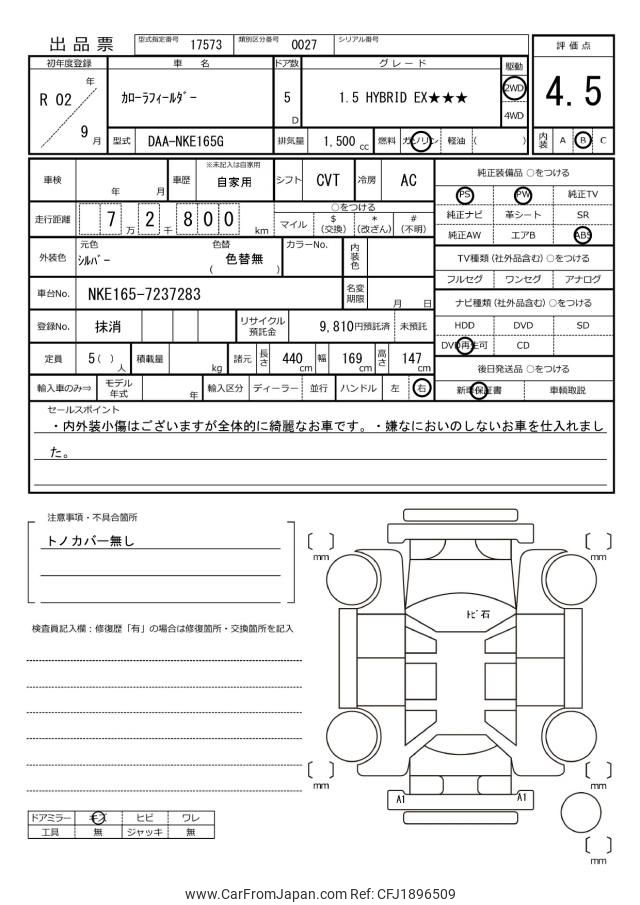 出品票
型式指定番号 17573 類別区分番号 0027 シリアル番号
評価点
4.5
内装 A B C
初年度登録 車名 ドア数 グレード 駆動
R 02 年 9 月
カローラフィールダー
5 D
1.5 HYBRID EX★★★
2WD
4WD
型式 DAA-NKE165G 排気量 1,500 cc 燃料 ガソリン 軽油 ( )
車検 年 月 車歴 ※未記入は自家用 自家用 シフト CVT 冷房 AC
走行距離 7 万 2 千 8 0 0 km
○をつける
マイル $(交換) *(改ざん) #(不明)
外装色 元色 シルバー 色替 ( 色替無 ) カラーNo. 内装色
車台No. NKE165-7237283 名変期限 月 日
登録No. 抹消 リサイクル預託金 9,810円預託済 未預託
定員 5( )人 積載量 kg 諸元 長さ 440 cm 幅 169 cm 高さ 147 cm
輸入車のみ⇒ モデル年式 年 輸入区分 ディーラー 並行 ハンドル 左 右
純正装備品 ○をつける
PS PW 純正TV
純正ナビ 革シート SR
純正AW エアB ABS
TV種類(社外品含む)○をつける
フルセグ ワンセグ アナログ
ナビ種類(社外品含む)○をつける
HDD DVD SD
DVD再生可 CD
後日発送品 ○をつける
新車保証書 車輌取説
セールスポイント
・内外装小傷はございますが全体的に綺麗なお車です。・嫌なにおいのしないお車を仕入れまし
た。
注意事項・不具合箇所
トノカバー無し
検査員記入欄:修復歴「有」の場合は修復箇所・交換箇所を記入
mm
mm
トビ石
mm
mm
A1 A1
mm
ドアミラー キズ ヒビ ワレ
工具 無 ジャッキ 無
www.CarFromJapan.com Ref: CFJ1896509